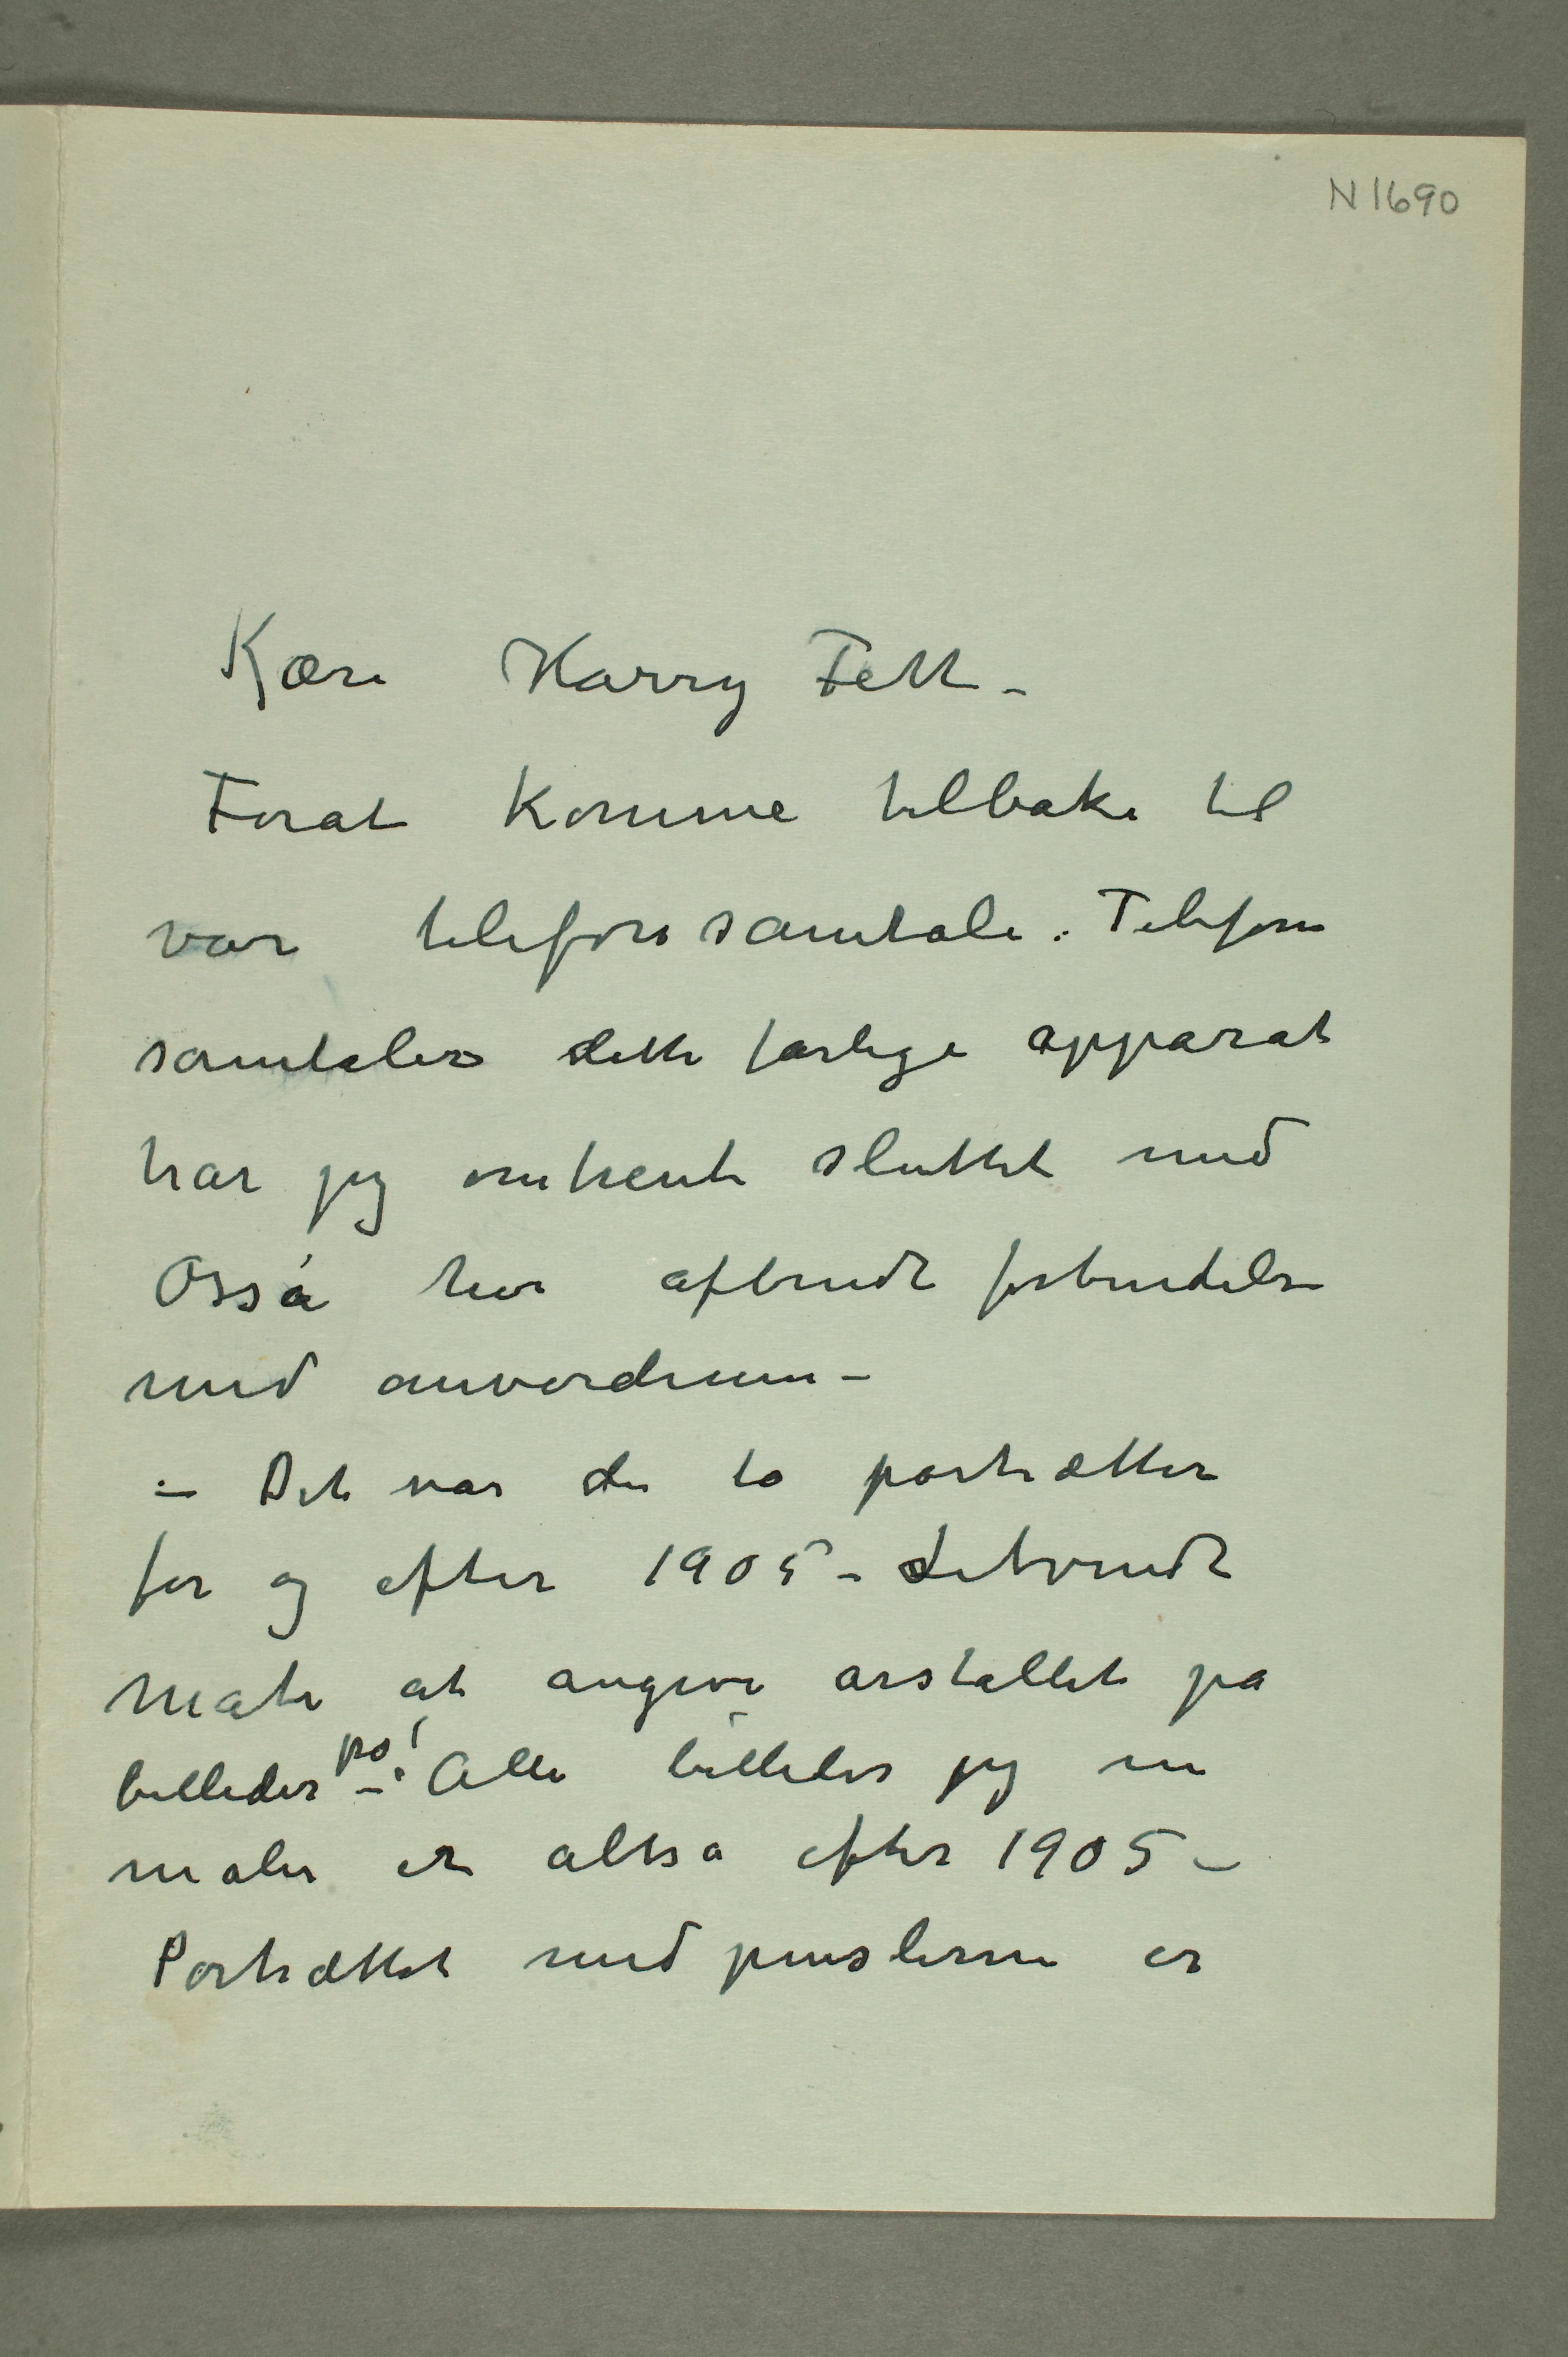 N 1690
Kære Harry Fett –
Forat komme tilbake til
vor telefonsamtale. Telefon
samtaler dette farlige apparat
har jeg omtrent sluttet med
Osså her afbrudt forbindelse
med
– Det var de to portrætter
før og efter 1905 – Letvindt
måte at angive årstallet på
billeder på! Alle billeder jeg nu
maler er altså efter 1905 –
Portrættet med penslerne er